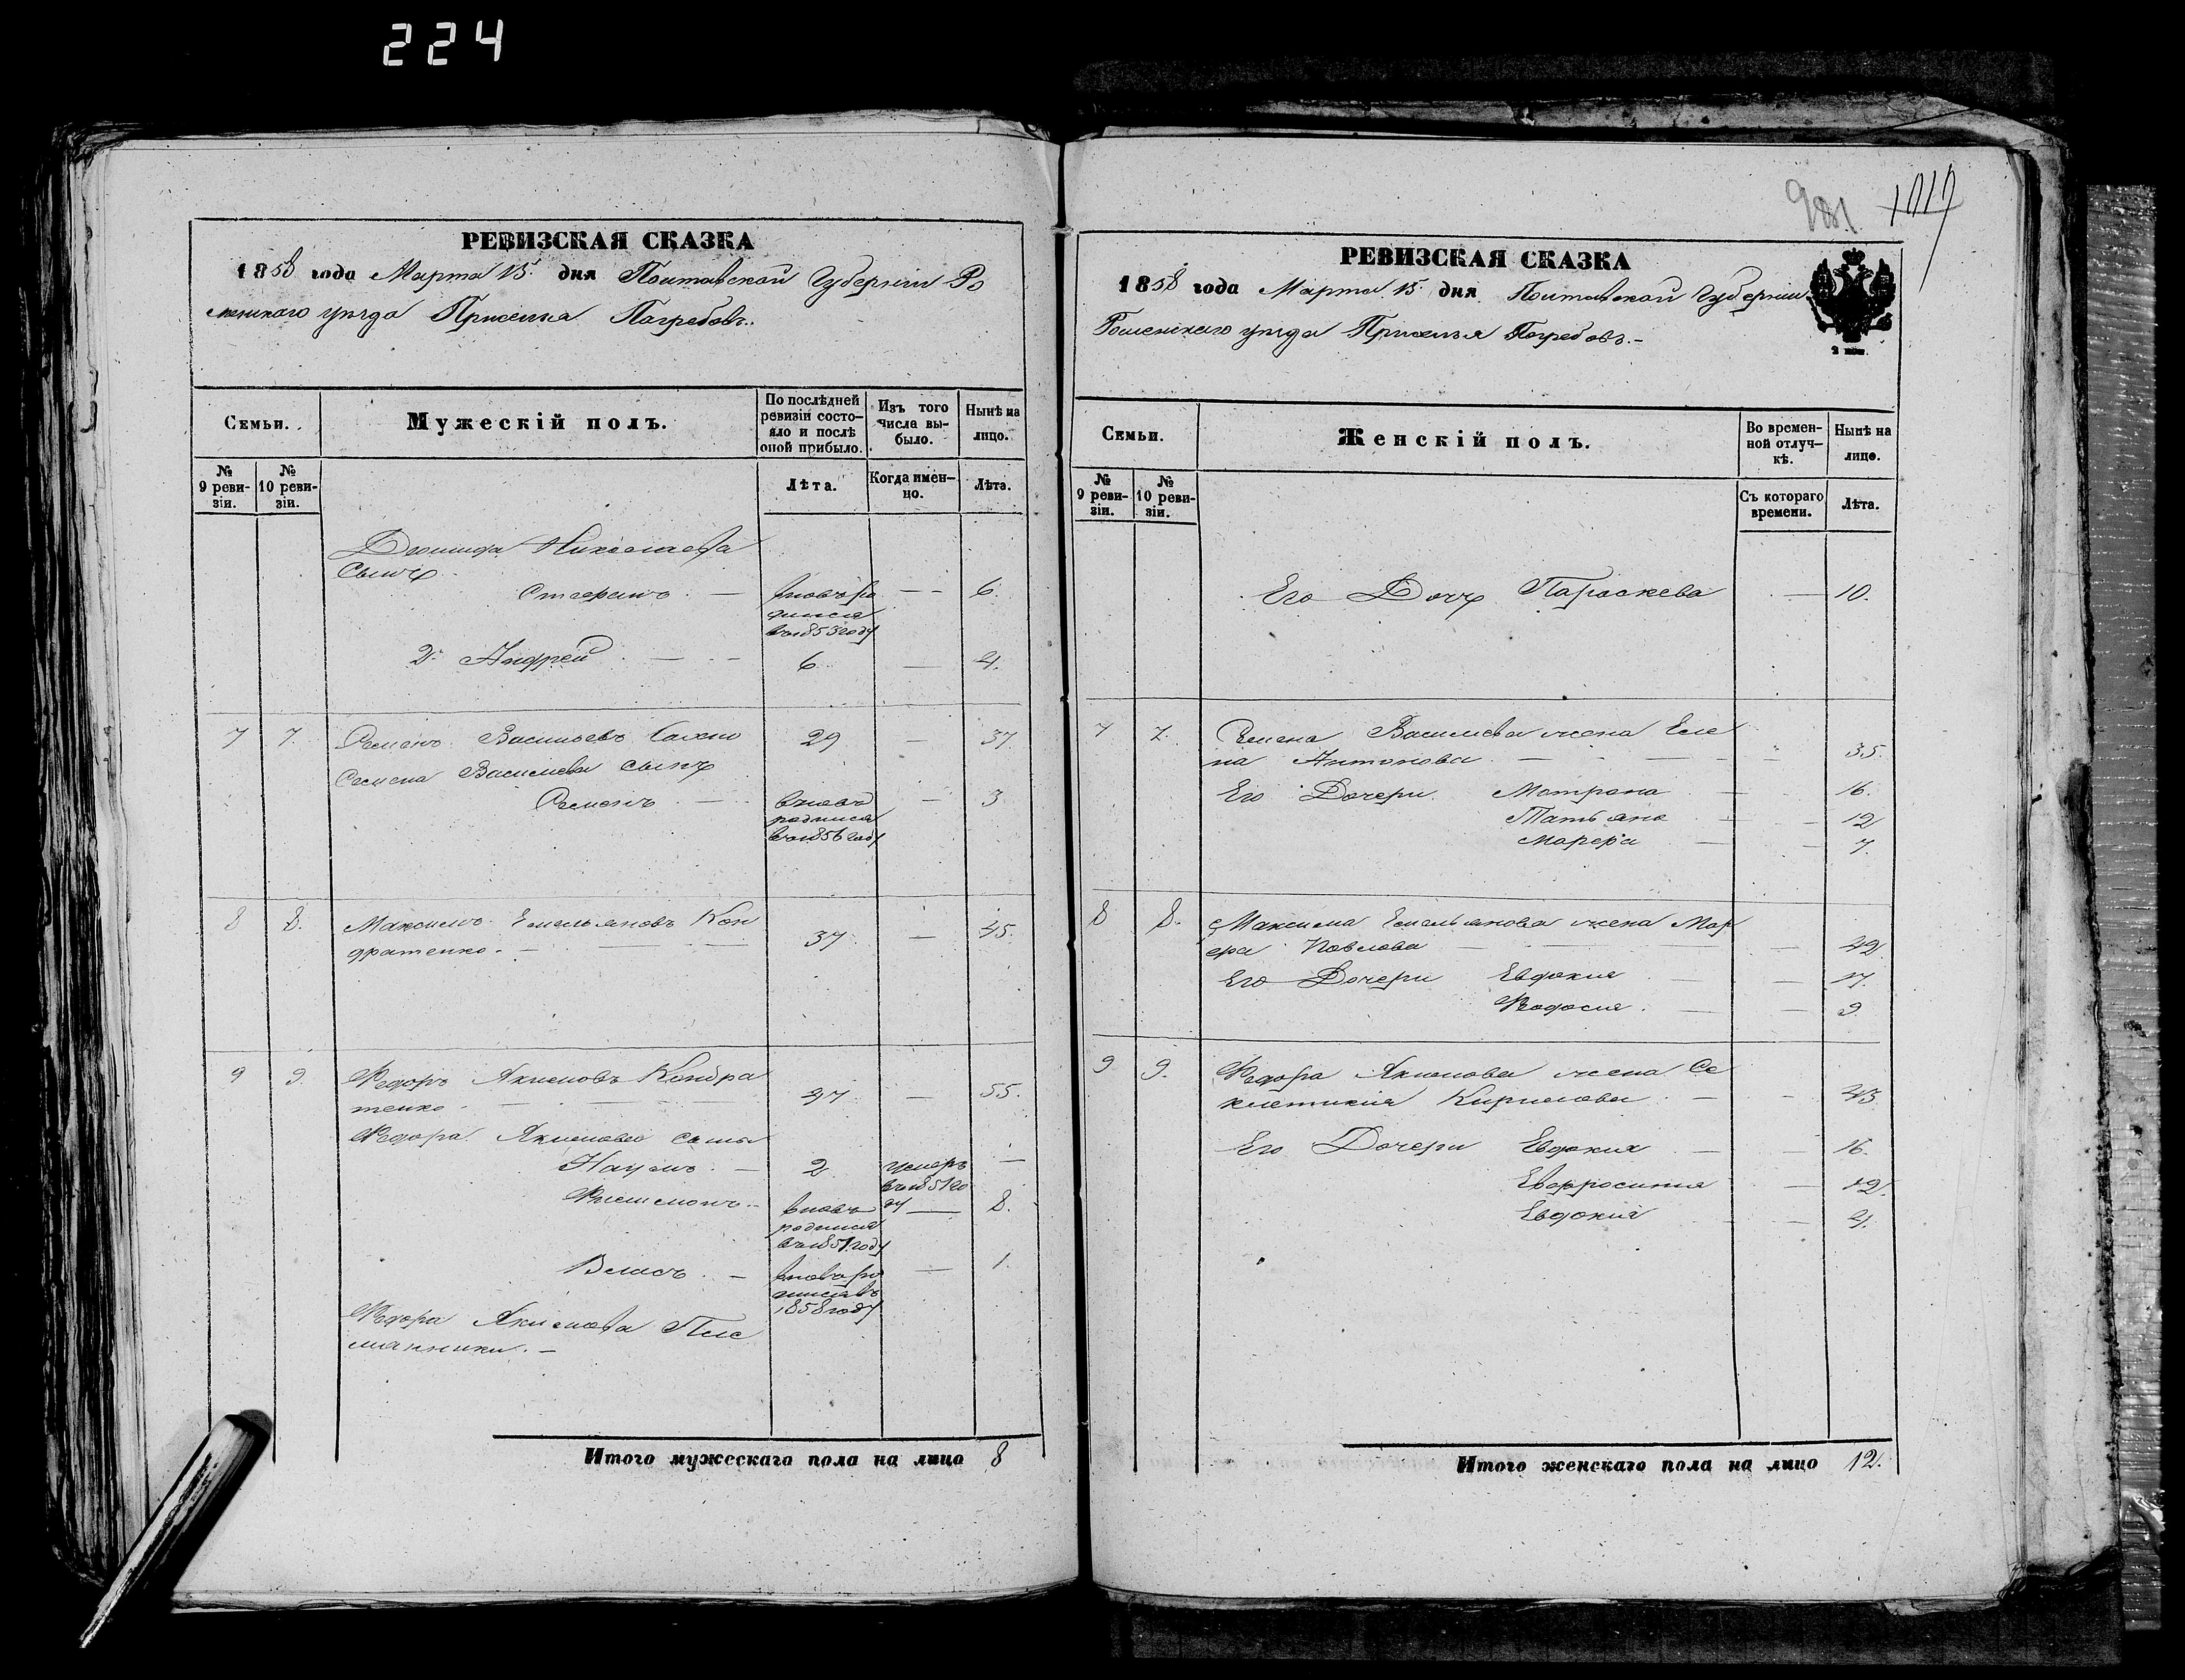 224
РЕВИЗСКАЯ СКАЗКА
1858 года Марта 15 дня Полтавской Губернии Ро
менского уезда Приселка Погребовъ.
Семьи. Мужескій полъ. По послѣдней ревизіи состояло и послѣ оной прибыло. Изъ того числа выбыло. Нынѣ на лицо.
№ 9 ревизіи. № 10 ревизіи. Лѣта. Когда именно. Лѣта.
Николаева
Сынъ
Стефанъ. — вновь ро — — 6.
дился
въ 1853 году
2. Андрей — — 6. —
7 7. Семенъ Васильевъ 29 — 37.
Семена Васильева сынъ
Семенъ — вновь — 3
родился
въ 1856 году
8 8. Максимъ Емельяновъ Кон
дратенко. — 37 — 45.
9 9. Федоръ Якимовъ Кондра
тенко — 47 — 55.
Федора Якимова сыны
Наумъ — 2 умеръ —
въ 1851 го
Филимонъ — вновь ду — 8.
родился
въ 1851 году
Власъ — вновь ро — 1.
дился въ
1858 году
Федора Якимова Пле
мянники. —
Итого мужескаго пола на лицо 8
981 1017
РЕВИЗСКАЯ СКАЗКА
1858 года Марта 15 дня Полтавской Губернии
Роменского уезда Приселка Погребовъ. —
Семьи. Женскій полъ. Во временной отлучкѣ. Нынѣ на лицо.
№ 9 ревизіи. № 10 ревизіи. Съ котораго времени. Лѣта.
Его Дочь Параскева — 10.
7 7. Семена Васильева жена Еле
на Антонова — 35.
Его Дочери Матрона — 16.
Татьяна — 12
Марфа — 7.
8 8. Максима Емельянова жена Мар
фа Павлова — 42
Его Дочери Евдокия — 17.
Феодосия — 9
9 9. Федора Якимова жена Се
клетикия Кирилова — 45.
Его Дочери Евдокия — 16.
Евфросиния — 12.
Евдокия — 4.
Итого женскаго пола на лицо 12.